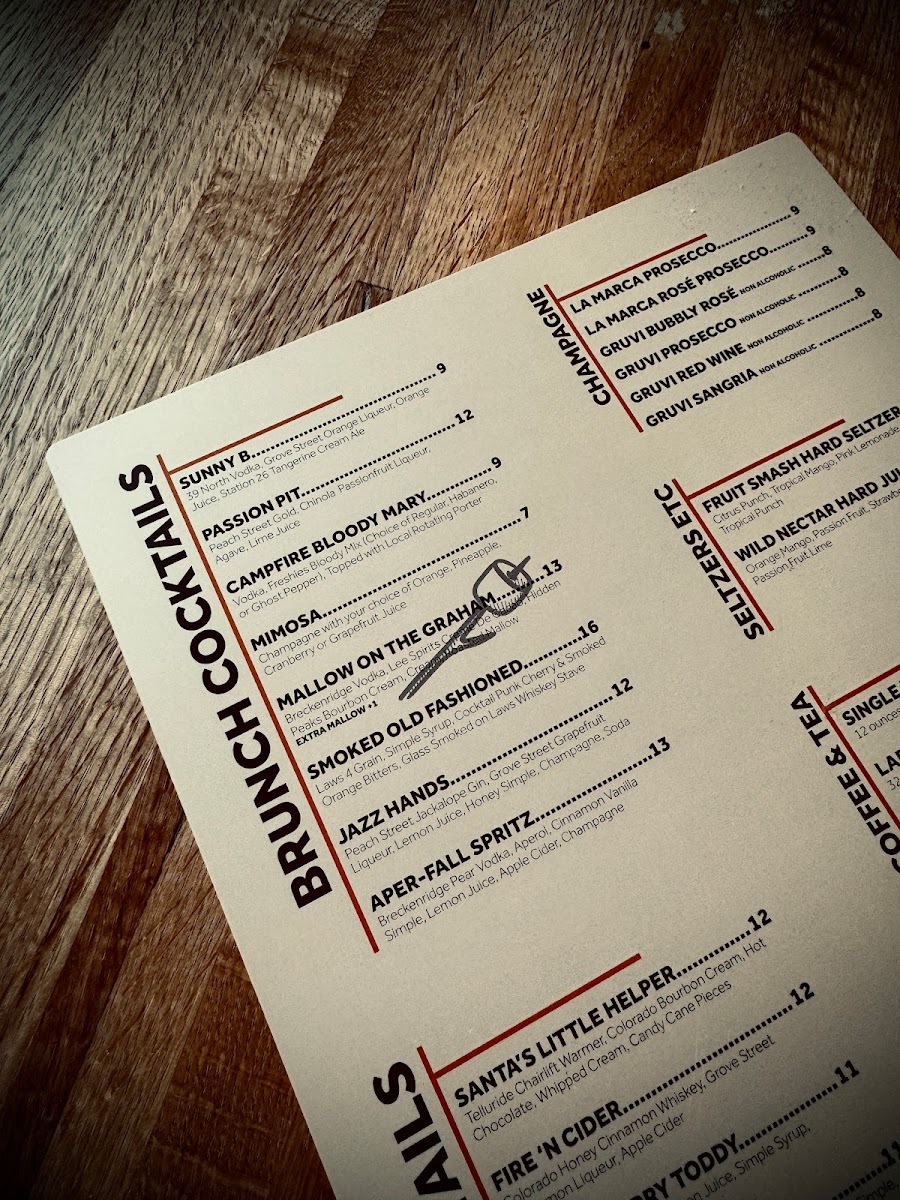 BRUNCH COCKTAILS
SUNNY B. 9
39 North Vodka, Grove Street Orange Liqueur, Orange
Juice, Station 26 Tangerine Cream Ale
PASSION PIT 12
Peach Street Gold, Chinola Passionfruit Liqueur,
Agave, Lime Juice
CAMPFIRE BLOODY MARY 9
Vodka, Freshies Bloody Mix (Choice of Regular, Habanero,
or Ghost Pepper), Topped with Local Rotating Porter
MIMOSA 7
Champagne with your choice of Orange, Pineapple,
Cranberry or Grapefruit Juice
MALLOW ON THE GRAHAM 13
Breckenridge Vodka, Lee Spirits Hidden
Peaks Bourbon Cream, Mallow
EXTRA MALLOW +1
SMOKED OLD FASHIONED 16
Laws 4 Grain, Simple Syrup, Cocktail Punk Cherry & Smoked
Orange Bitters, Glass Smoked on Laws Whiskey Stave
JAZZ HANDS 12
Peach Street Jackalope Gin, Grove Street Grapefruit
Liqueur, Lemon Juice, Honey Simple, Champagne, Soda
APER-FALL SPRITZ 13
Breckenridge Pear Vodka, Aperol, Cinnamon Vanilla
Simple, Lemon Juice, Apple Cider, Champagne
CHAMPAGNE
LA MARCA PROSECCO 9
LA MARCA ROSÉ PROSECCO 9
GRUVI BUBBLY ROSÉ NON ALCOHOLIC 8
GRUVI PROSECCO NON ALCOHOLIC 8
GRUVI RED WINE NON ALCOHOLIC 8
GRUVI SANGRIA NON ALCOHOLIC 8
SELTZERS ETC
FRUIT SMASH HARD SELTZER
Citrus Punch, Tropical Mango, Pink Lemonade
Tropical Punch
WILD NECTAR HARD
Orange Mango, Passion Fruit,
Passion Fruit Lime
COFFEE & TEA
SINGLE
12 ounces
32
SANTA'S LITTLE HELPER 12
Telluride Chairlift Warmer, Colorado Bourbon Cream, Hot
Chocolate, Whipped Cream, Candy Cane Pieces
FIRE 'N CIDER 12
Colorado Honey Cinnamon Whiskey, Grove Street
Liqueur, Apple Cider
TODDY 11
Juice, Simple Syrup,